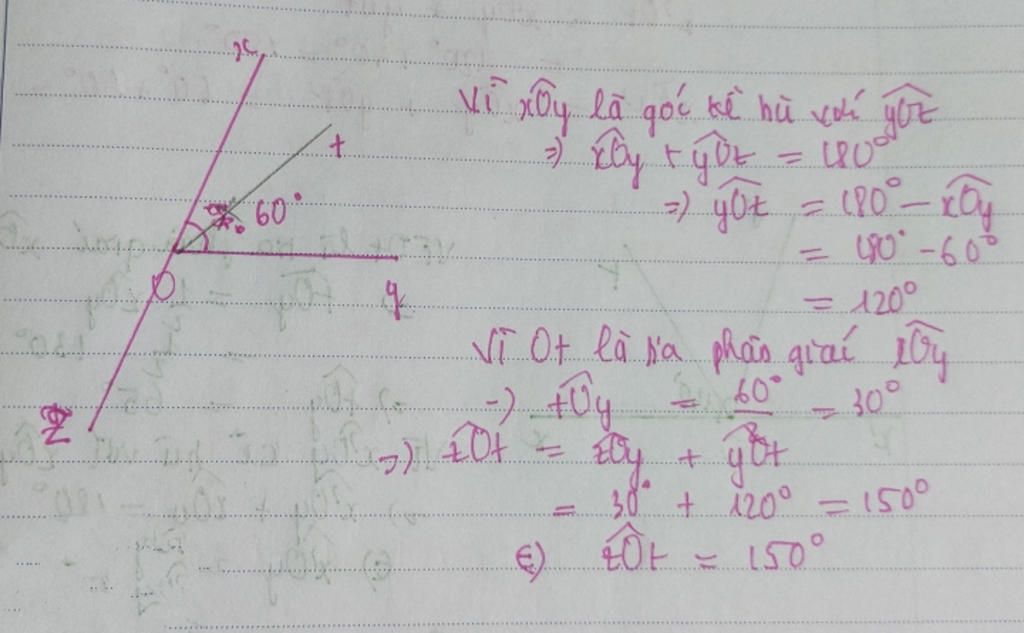 x
t
60°
O
y
z
Vì x̂Oy là góc kề bù với ŷOt
=) x̂Oy + ŷOt = 180°
=) ŷOt = 180° - x̂Oy
= 180° - 60°
= 120°
Vì Ot là tia phân giác x̂Oy
=) t̂Oy = 60° = 30°
=) ẑOt = ẑOy + ŷOt
= 30° + 120° = 150°
ẑOt = 150°